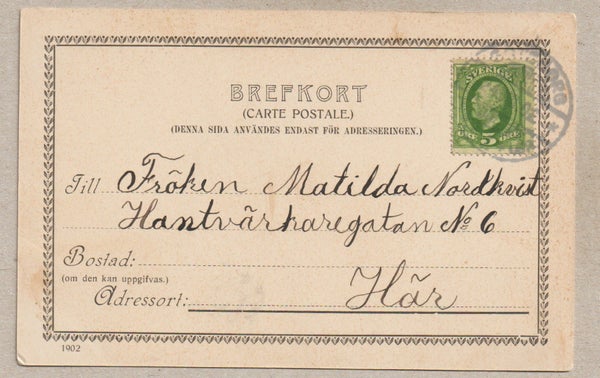 BREFKORT
(CARTE POSTALE.)
(DENNA SIDA ANVÄNDES ENDAST FÖR ADRESSERINGEN.)
SVERIGE
ÖRE 5 ÖRE
Till Fröken Matilda Nordkvist
Hantvärkaregatan No 6
Bostad:
(om den kan uppgifvas.)
Adressort: Här
1902